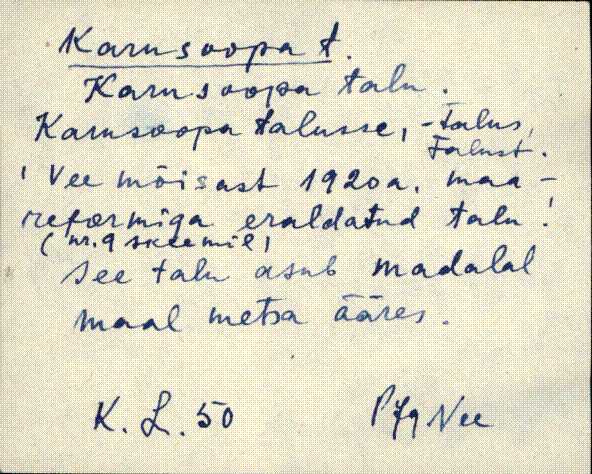 Karusoopa t.
Karusoopa talu.
Karusoopa talusse, -talus,
talust.
! Vee mõisast 1920 a. maa-
reformiga eraldatud talu!
(nr. 9 skeemil)
See talu asub madalal
maal metsa ääres.
K. L. 50 Nee